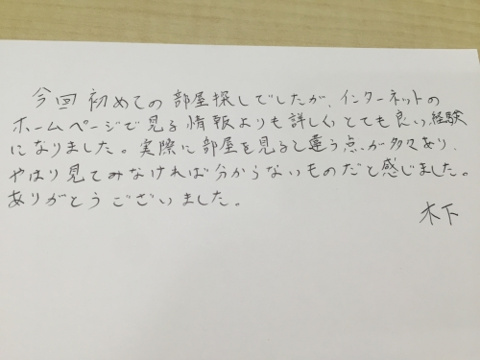 今回初めての部屋探しでしたが、インターネットの
ホームページで見る情報よりも詳しくとても良い経験
になりました。実際に部屋を見ると違う点が多々あり、
やはり見てみなければ分からないものだと感じました。
ありがとうございました。
木下